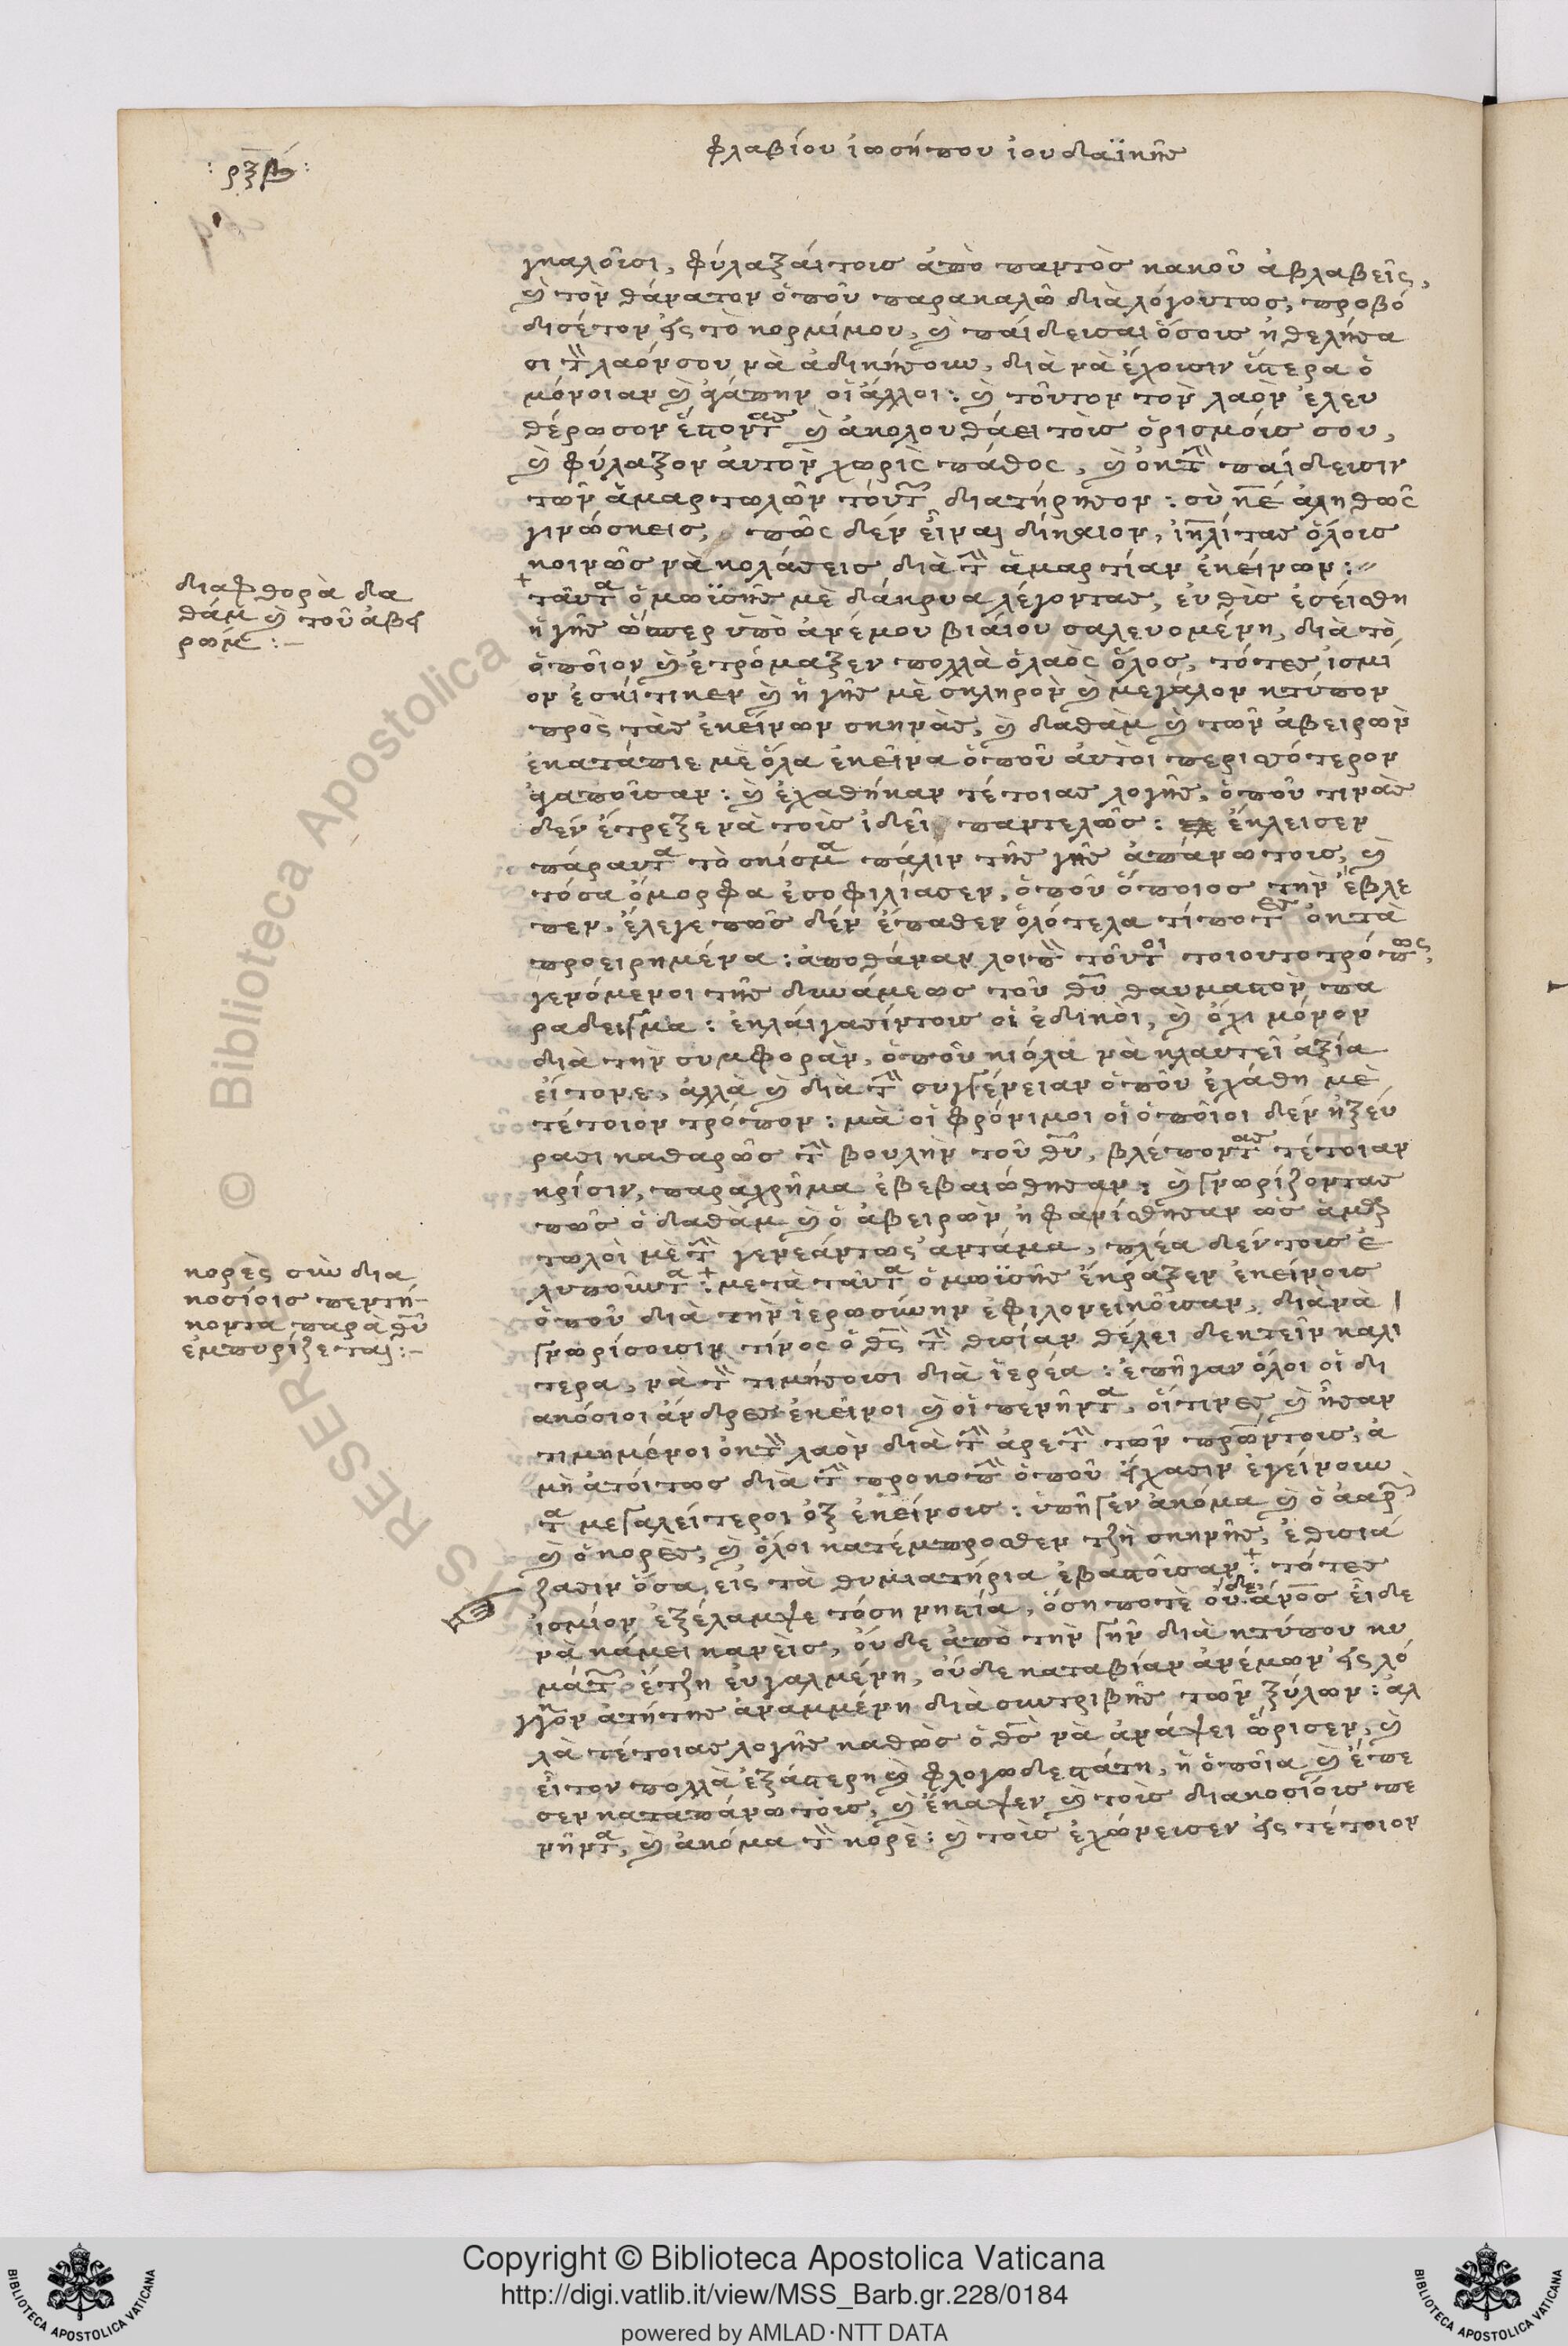 : ρξβ :
φλαβίου ἰωσήπου ἰουδαϊκῆς
γκαλοῦσι, φύλαξαί τους ἀπὸ παντὸς κακοῦ ἀβλαβεῖς,
καὶ τὸν θάνατον ὁποῦ παρακαλῶ διὰ λόγου τως, προβό
δισέ τον εἰς τὸ κορμί μου, καὶ παίδευσαι ὅσους ἠθελήσα
σι τὸν λαόν σου νὰ ἀδικήσουν, διὰ νὰ ἔχουσιν ὕστερα ὁ
μόνοιαν καὶ ἀγάπην οἱ ἄλλοι: καὶ τοῦτον τὸν λαὸν ἐλευ
θέρωσον ἔστοντας καὶ ἀκολουθάει τοὺς ὁρισμούς σου,
καὶ φύλαξον αὐτὸν χωρὶς πάθος, καὶ ὀκ τὴν παίδευσιν
τῶν ἁμαρτωλῶν τούτων διατήρησον: σὺ κύριε ἀληθῶς
γινώσκεις, πῶς δὲν εἶναι δίκαιον, ἰσραηλίτας ὅλους
κοινῶς νὰ κολάσεις διὰ τὴν ἁμαρτίαν ἐκείνων:
διαφθορὰ δα
θὰμ καὶ τοῦ ἀβει
ρώμ:-
ταῦτα ὁ μωϋσῆς μὲ δάκρυα λέγοντας, εὐθὺς ἐσείσθη
ἡ γῆς ὥσπερ ὑπὸ ἀνέμου βιαίου σαλευομένη, διὰ τὸ
ὁποῖον καὶ ἐτρόμαξεν πολλὰ ὁ λαὸς ὅλος, τότες ἰσμί
ον ἐσκίστικεν καὶ ἡ γῆς μὲ σκληρὸν καὶ μεγάλον κτύπον
πρὸς τὰς ἐκείνων σκηνὰς, καὶ δαθὰμ καὶ τῶν ἀβειρὼν
ἐκατάπιε μὲ ὅλα ἐκεῖνα ὁποῦ αὐτοὶ περισσότερον
ἀγαποῦσαν: καὶ ἐχαθήκαν τέτοιας λογῆς, ὁποῦ τινὰς
δὲν ἔτρεξε νὰ τοὺς ἰδεῖ παντελῶς: ἔκλεισεν
πάραυτα τὸ σκίσμα πάλιν τῆς γῆς ἀπάνω τους, καὶ
τόσα ὄμορφα ἐσοφιλίασεν, ὁποῦ ὅποιος τὴν ἔβλε
πεν, ἔλεγε πῶς δὲν ἔπαθεν ὁλότελα τίποτες ὀκ τὰ
προειρημένα: ἀποθάναν λοιπὸν τοῦτοι τοιουτοτρόπως,
γενόμενοι τῆς δυνάμεως τοῦ θῦ θαυμαστὸν πα
ράδειγμα: ἐκλαίγασίν τους οἱ ἐδικοὶ, καὶ ὄχι μόνον
διὰ τὴν συμφορὰν, ὁποῦ κιόλα νὰ κλαυτεῖ ἀξία
εἴτονε, ἀλλὰ καὶ διὰ τὴν συγγένειαν ὁποῦ ἐχάθη μὲ
τέτοιον τρόπον: μὰ οἱ φρόνιμοι οἱ ὁποῖοι δὲν ἠξεύ
ρασι καθαρῶς τὴν βουλὴν τοῦ θῦ, βλέποντας τέτοιαν
κρίσιν, παραχρῆμα ἐβεβαιώθησαν: καὶ γνωρίζοντας
πῶς ὁ δαθὰμ καὶ ὁ ἀβειρὼν ἠφανίσθησαν ὡς ἁμαρ
τωλοὶ μὲ τὴν γενεάν τως ἀντάμα, πλέα δὲν τοὺς ἐ
λυποῦντα: μετὰ ταῦτα ὁ μωϋσῆς ἔκραξεν ἐκείνους
κορὲς σὺν δια
κοσίοις πεντή-
κοντα παρὰ θῦ
ἐμπυρίζεται:-
ὁποῦ διὰ τὴν ἱερωσύνην ἐφιλονεικοῦσαν, διὰ νὰ
γνωρίσουσιν τίνος ὁ θς τὴν θυσίαν θέλει δεκτεῖν καλι
τερα, νὰ τὸν τιμήσουσι διὰ ἱερέα: ἐπῆγαν ὅλοι οἱ δι
ακόσιοι ἄνδρες ἐκεῖνοι καὶ οἱ πενῆντα, οἵτινες καὶ ἦσαν
τιμημένοι ὀκ τὸν λαὸν διὰ τὴν ἀρετὴν τῶν πρών τους, ἀ
μὴ ἀτοί τως διὰ τὴν προκοπὴν ὁποῦ εἴχασιν ἐγείνουν
τα μεγαλείτεροι ὀξ ἐκείνους: ὑπῆγεν ἀκόμα καὶ ὁ ἀαρὼν
καὶ ὁ κορες, καὶ ὅλοι κατέμπροσθεν τζὴ σκηνῆς, ἐθυσιά
ζασιν ὅσα εἰς τὰ θυμιατήρια ἐβαστοῦσαν: τότες
ἰσμίον ἐξέλαμψε τόση νηστία, ὅση ποτὲ οὐδὲ ἄνος εἶδε
νὰ κάμει κανεὶς, οὐδὲ ἀπὸ τὴν γῆν διὰ κτύπου κυ
μάτων ἔτζη εὐγαλμένη, οὐδὲ κατὰ βίαν ἀνέμων εἰς λό
γγον ἀτή της ἀναμμένη διὰ συντριβῆς τῶν ξύλων: ἀλ
λὰ τέτοιας λογῆς καθὼς ὁ θς νὰ ἀνάψει ὥρισεν, καὶ
εἶτον πολλὰ ἐξάστερη καὶ φλογωδεστάτη, ἡ ὁποία καὶ ἔπε
σεν καταπάνω τους, καὶ ἔκαψεν καὶ τοὺς διακοσίους πε
νῆντα, καὶ ἀκόμα τὸν κορὲ: καὶ τοὺς ἐχώνευσεν εἰς τέτοιον
© Biblioteca Apostolica Vaticana
Copyright © Biblioteca Apostolica Vaticana
http://digi.vatlib.it/view/MSS_Barb.gr.228/0184
powered by AMLAD·NTT DATA
BIBLIOTECA APOSTOLICA VATICANA
BIBLIOTECA APOSTOLICA VATICANA